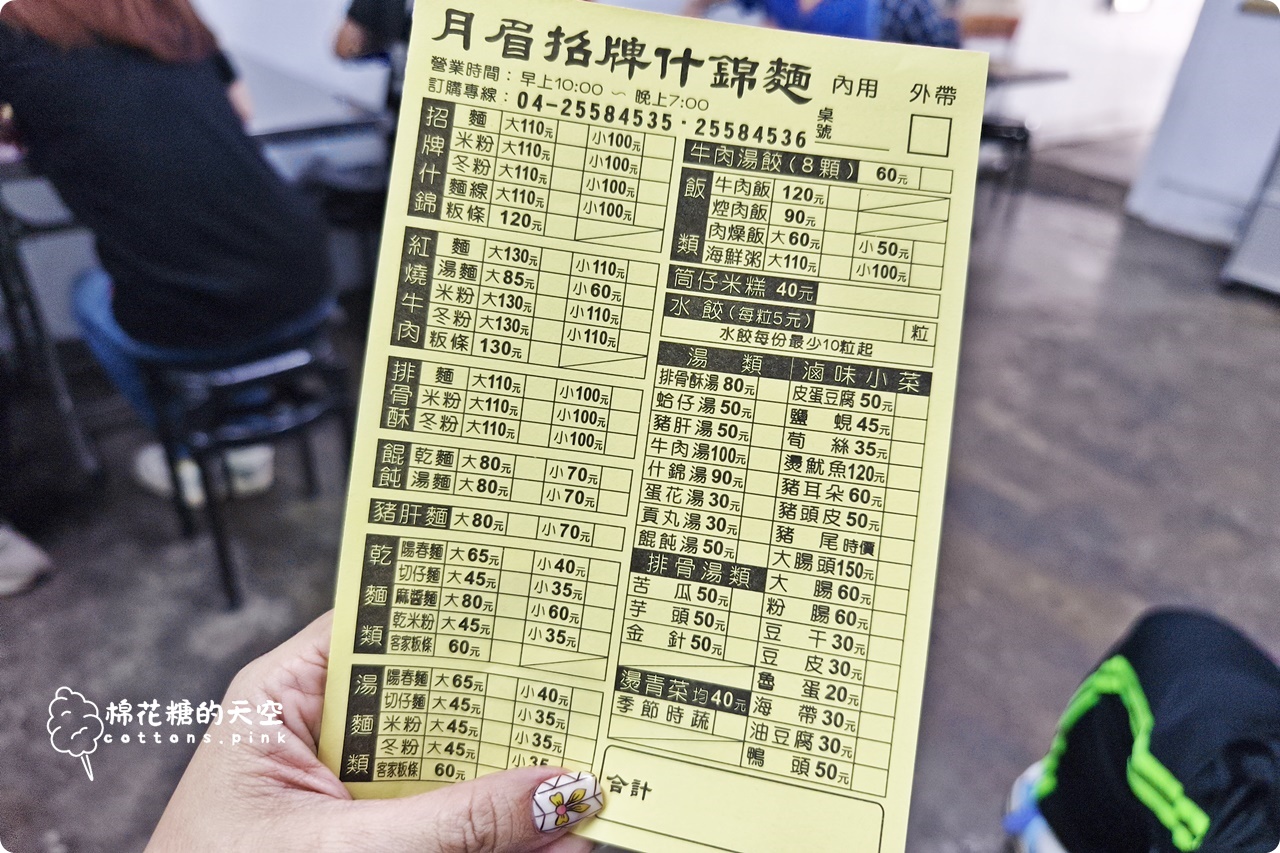 月眉招牌什錦麵
內用 外帶
營業時間：早上10:00 ~ 晚上7:00
訂購專線：04-25584535・25584536
桌號
招牌什錦
麵 大110元 小100元
米粉 大110元 小100元
冬粉 大110元 小100元
麵線 大110元 小100元
粄條 120元
紅燒牛肉
麵 大130元 小110元
湯麵 大85元 小60元
米粉 大130元 小110元
冬粉 大130元 小110元
粄條 130元
排骨酥
麵 大110元 小100元
米粉 大110元 小100元
冬粉 大110元 小100元
餛飩
乾麵 大80元 小70元
湯麵 大80元 小70元
豬肝麵 大80元 小70元
乾麵類
陽春麵 大65元 小40元
切仔麵 大45元 小35元
麻醬麵 大80元 小60元
乾米粉 大45元 小35元
客家粄條 60元
湯麵類
陽春麵 大65元 小40元
切仔麵 大45元 小35元
米粉 大45元 小35元
冬粉 大45元 小35元
客家粄條 60元
牛肉湯餃(8顆) 60元
飯類
牛肉飯 120元
焢肉飯 90元
肉燥飯 大60元 小50元
海鮮粥 大110元 小100元
筒仔米糕 40元
水餃(每粒5元) 粒
水餃每份最少10粒起
湯類
排骨酥湯 80元
蛤仔湯 50元
豬肝湯 50元
牛肉湯 100元
什錦湯 90元
蛋花湯 30元
貢丸湯 30元
餛飩湯 50元
排骨湯類
苦瓜 50元
芋頭 50元
金針 50元
燙青菜均40元
季節時蔬
滷味小菜
皮蛋豆腐 50元
鹽蜆 45元
筍絲 35元
燙魷魚 120元
豬耳朵 60元
豬頭皮 50元
豬尾 時價
大腸頭 150元
大腸 60元
粉腸 60元
豆干 30元
豆皮 30元
魯蛋 20元
海帶 30元
油豆腐 30元
鴨頭 50元
合計
棉花糖的天空
cottons.pink